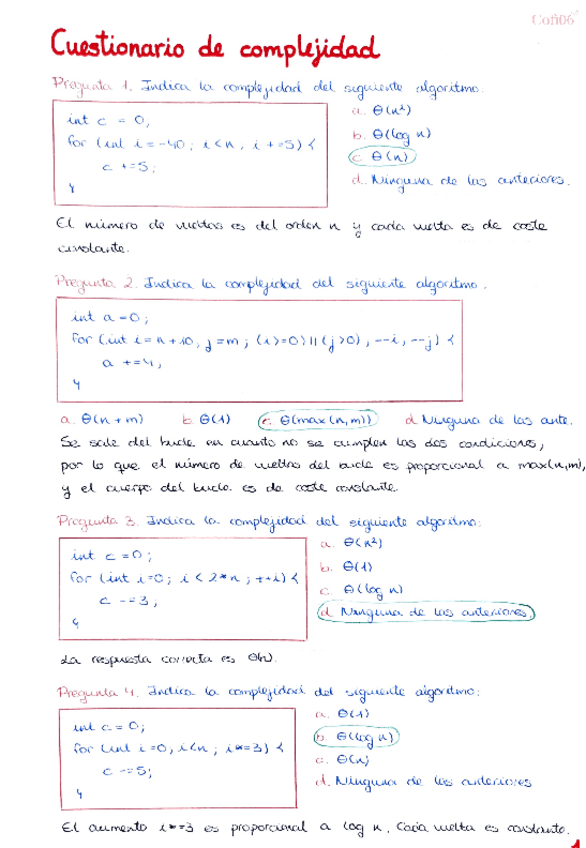 Cofi06
Cuestionario de complejidad
Pregunta 1. Indica la complejidad del siguiente algoritmo:
int c = 0;
for (int i=-40; i<n; i+=5) {
c +=5;
}
a. Θ(n²)
b. Θ(log n)
c. Θ(n)
d. Ninguna de las anteriores.
El número de vueltas es del orden n y cada vuelta es de coste
constante.
Pregunta 2. Indica la complejidad del siguiente algoritmo.
int a=0;
for (int i=n+10, j=m; (i>0)||(j>0), --i, --j) {
a +=4;
}
a. Θ(n+m) b. Θ(1) c. Θ(max(n,m)) d. Ninguna de las ante.
Se sale del bucle en cuanto no se cumplen las dos condiciones,
por lo que el número de vueltas del bucle es proporcional a max(n,m),
y el cuerpo del bucle es de coste constante.
Pregunta 3. Indica la complejidad del siguiente algoritmo:
int c=0;
for (int i=0; i<2*n; ++i) {
c -=3;
}
a. Θ(n²)
b. Θ(1)
c. Θ(log n)
d. Ninguna de las anteriores.
La respuesta correcta es Θ(n).
Pregunta 4. Indica la complejidad del siguiente algoritmo:
int c=0;
for (int i=0, i<n; i*=3) {
c -=5;
}
a. Θ(1)
b. Θ(log n)
c. Θ(n)
d. Ninguna de las anteriores
El aumento i*=3 es proporcional a log n. Cada vuelta es constante.
1